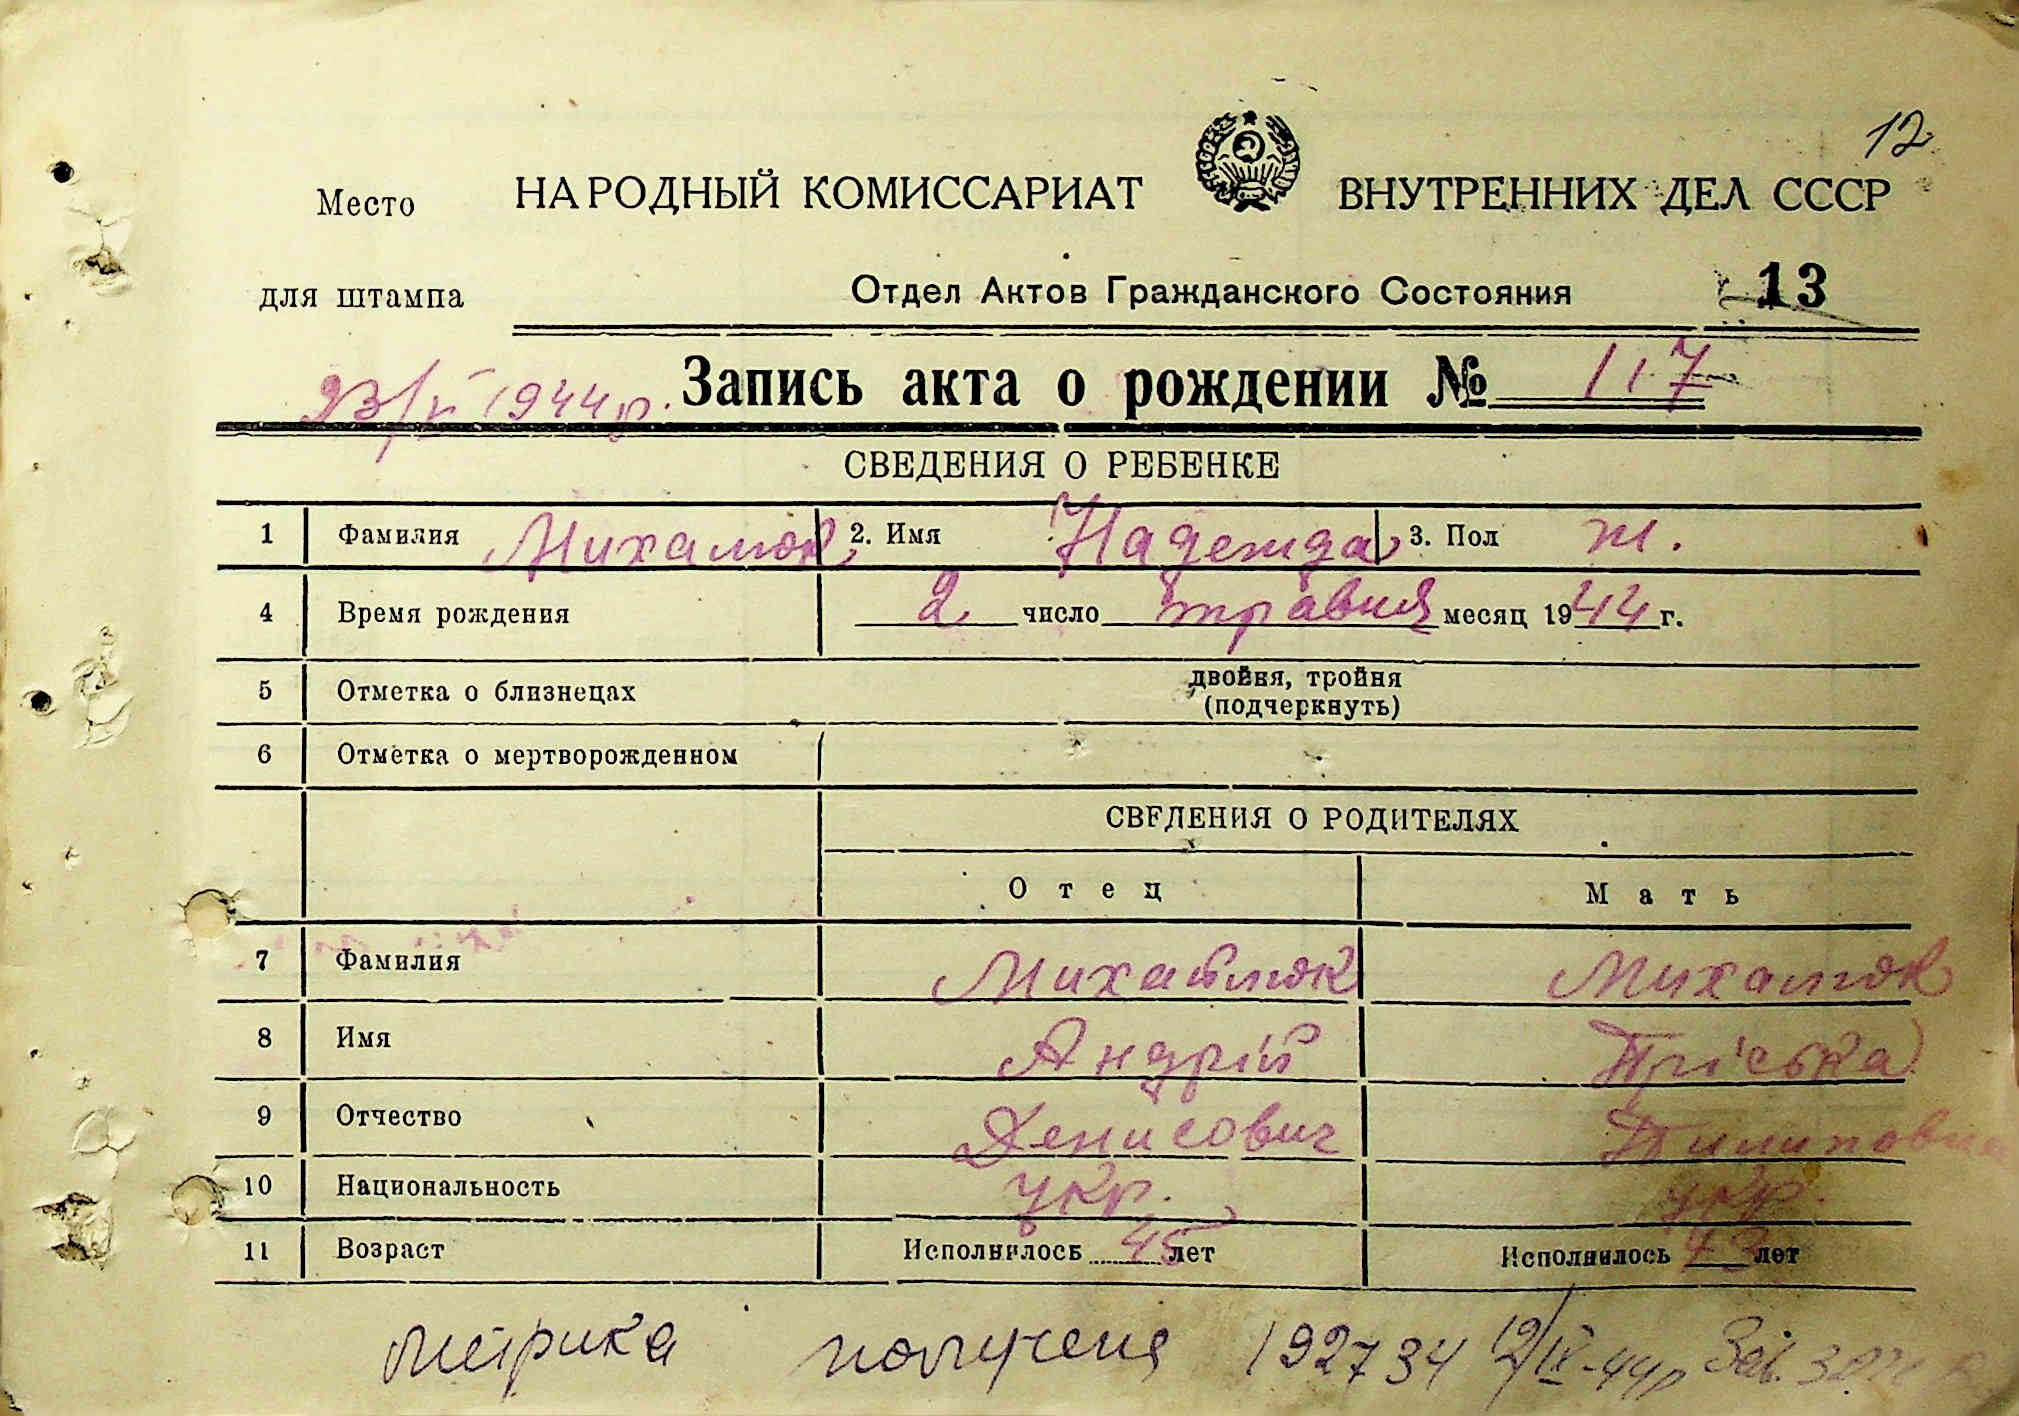 12
Место НАРОДНЫЙ КОМИССАРИАТ ВНУТРЕННИХ ДЕЛ СССР
для штампа Отдел Актов Гражданского Состояния 13
23/V 1944 р. Запись акта о рождении № 117
СВЕДЕНИЯ О РЕБЕНКЕ
1 Фамилия Михалюк 2. Имя Надежда 3. Пол ж.
4 Время рождения 2 число травня месяц 1944 г.
5 Отметка о близнецах двойня, тройня
(подчеркнуть)
6 Отметка о мертворожденном
СВЕДЕНИЯ О РОДИТЕЛЯХ
Отец Мать
7 Фамилия Михайлюк Михалюк
8 Имя Андрій Пріська
9 Отчество Денисович Пилиповна
10 Национальность укр. укр.
11 Возраст Исполнилось 45 лет Исполнилось 43 лет
метрика получена 192734 12/IX-44р Зав.